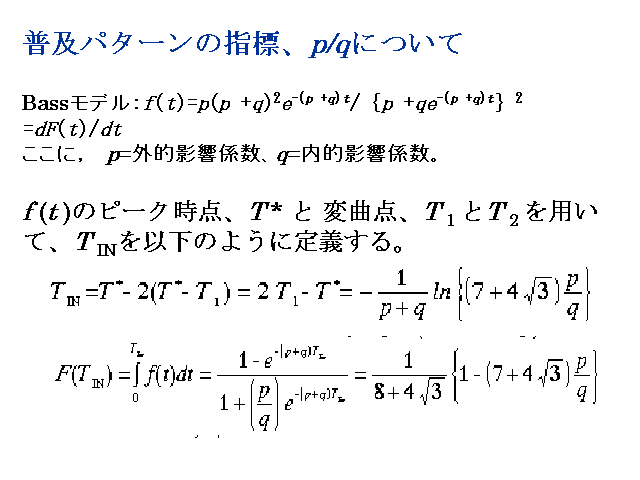 普及パターンの指標、p/qについて
Bassモデル：f(t)=p(p +q)²e^-(p +q)t/ {p +qe^-(p +q)t} ²
=dF(t)/dt
ここに， p=外的影響係数、q=内的影響係数。
f(t)のピーク時点、T* と 変曲点、T₁とT₂を用い
て、T_INを以下のように定義する。
T_IN=T*-2(T*-T₁)=2T₁-T*=-\frac{1}{p+q} ln{(7+4√3)\frac{p}{q}}
F(T_IN)=∫_0^{T_IN} f(t)dt=\frac{1-e^{-(p+q)T_IN}}{1+(\frac{p}{q})e^{-(p+q)T_IN}}=\frac{1}{8+4√3}{1-(7+4√3)\frac{p}{q}}